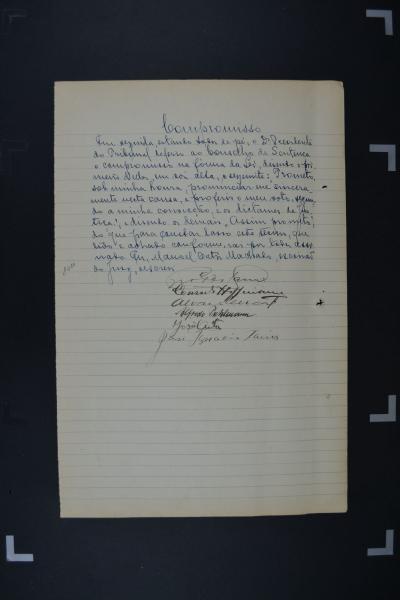 Compromisso
Em seguida, estando todos de pé, o Dr. Presidente
do Tribunal deferiu ao Conselho de Sentença
o compromisso na forma da lei, dizendo o pri
meiro delles, em voz alta, o seguinte: "Prometto,
sob minha honra, pronunciar-me sincera-
mente nesta causa, e proferir o meu voto, segun
do a minha convicção, e os dictames da jus
tiça", e dizendo os demais, "Assim prometto",
do que para constar lavro este termo, que
lido e achado conforme, vai por todos assi
gnado. Eu, Manoel Machado, escrivão
do jury, escrevi.
Hoffmann
Alfredo
José
José Ignacio